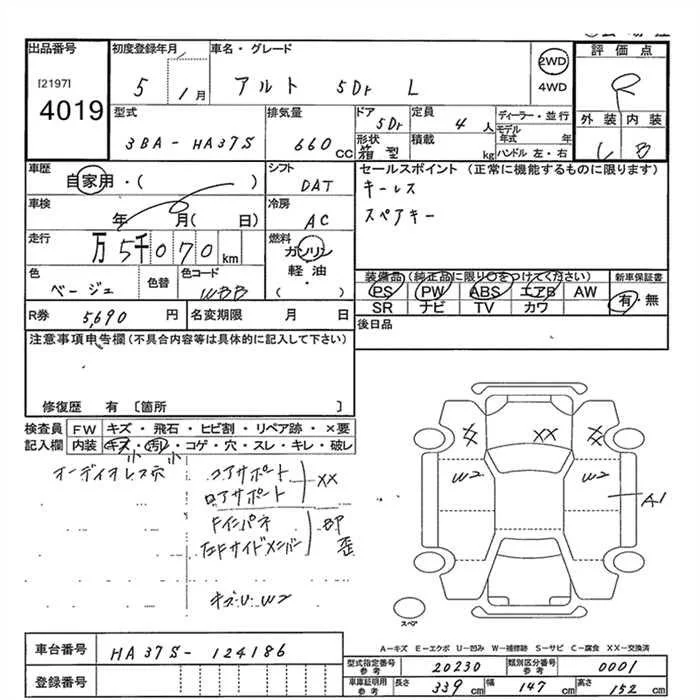 出品番号 初度登録年月 車名・グレード 評価点
[2197] 4019 5 1月 アルト 5Dr L 2WD 4WD R
外装 内装
型式 排気量 ドア 5Dr 定員 4人 ディーラー・並行
3BA-HA37S 660CC 形状 箱型 積載 kg モデル年式 年 ハンドル 左・右 B
車歴 自家用・( ) シフト DAT セールスポイント (正常に機能するものに限ります)
キーレス
車検 年 月( 日) 冷房 AC スペアキー
走行 万5千070km 燃料 ガソリン 軽油・( )
色 ベージュ 色替 色コード WBB
装備品(純正品に限り○をつけてください) 新車保証書
PS PW ABS エアB AW 有・無
SR ナビ TV カワ
R券 5,690円 名変期限 月 日 後日品
注意事項申告欄(不具合内容等は具体的に記入して下さい)
修復歴 有 〔箇所 〕
検査員 FW キズ・飛石・ヒビ割・リペア跡・×要
記入欄 内装 キズ・汚レ・コゲ・穴・スレ・キレ・破レ
小 小
オーディオレス穴 コアサポート
ロアサポート XX
Fインパネ
左Fサイドメンバー BP 歪
キズU W2
XX XX XX
W2 W2 A1
スペア
A-キズ E-エクボ U-凹み W-補修跡 S-サビ C-腐食 XX-交換済
車台番号 HA37S-124186
型式指定番号 参考 20230 類別区分番号 参考 0001
登録番号
車庫証明用 参考 長さ 339cm 幅 147cm 高さ 152cm